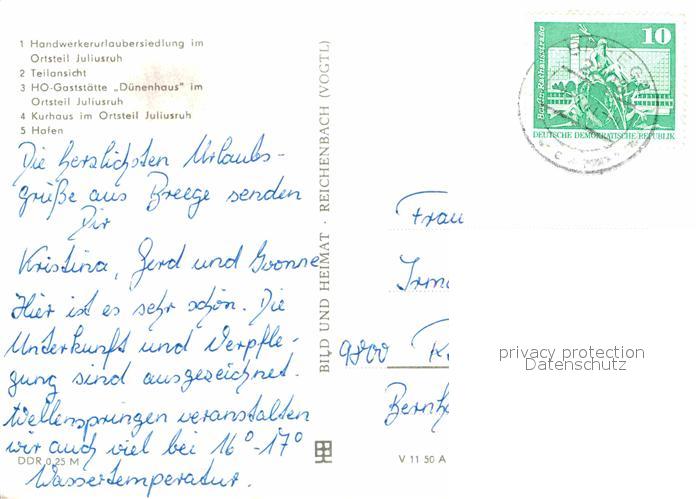 1 Handwerkerurlaubersiedlung im
Ortsteil Juliusruh
2 Teilansicht
3 HO-Gaststätte „Dünenhaus" im
Ortsteil Juliusruh
4 Kurhaus im Ortsteil Juliusruh
5 Hafen
Die herzlichsten Urlaubs-
grüße aus Breege senden
Dir
Kristina, Gerd und Yvonne
Hier ist es sehr schön. Die
Unterkunft und Verpfle-
gung sind ausgezeichnet.
Wellenspringen veranstalten
wir auch viel bei 16°-17°
Wassertemperatur.
DDR 0,25 M
BILD UND HEIMAT · REICHENBACH (VOGTL)
V 11 50 A
10
Berlin-Rathausstraße
DEUTSCHE DEMOKRATISCHE REPUBLIK
Frau
9800
privacy protection
Datenschutz